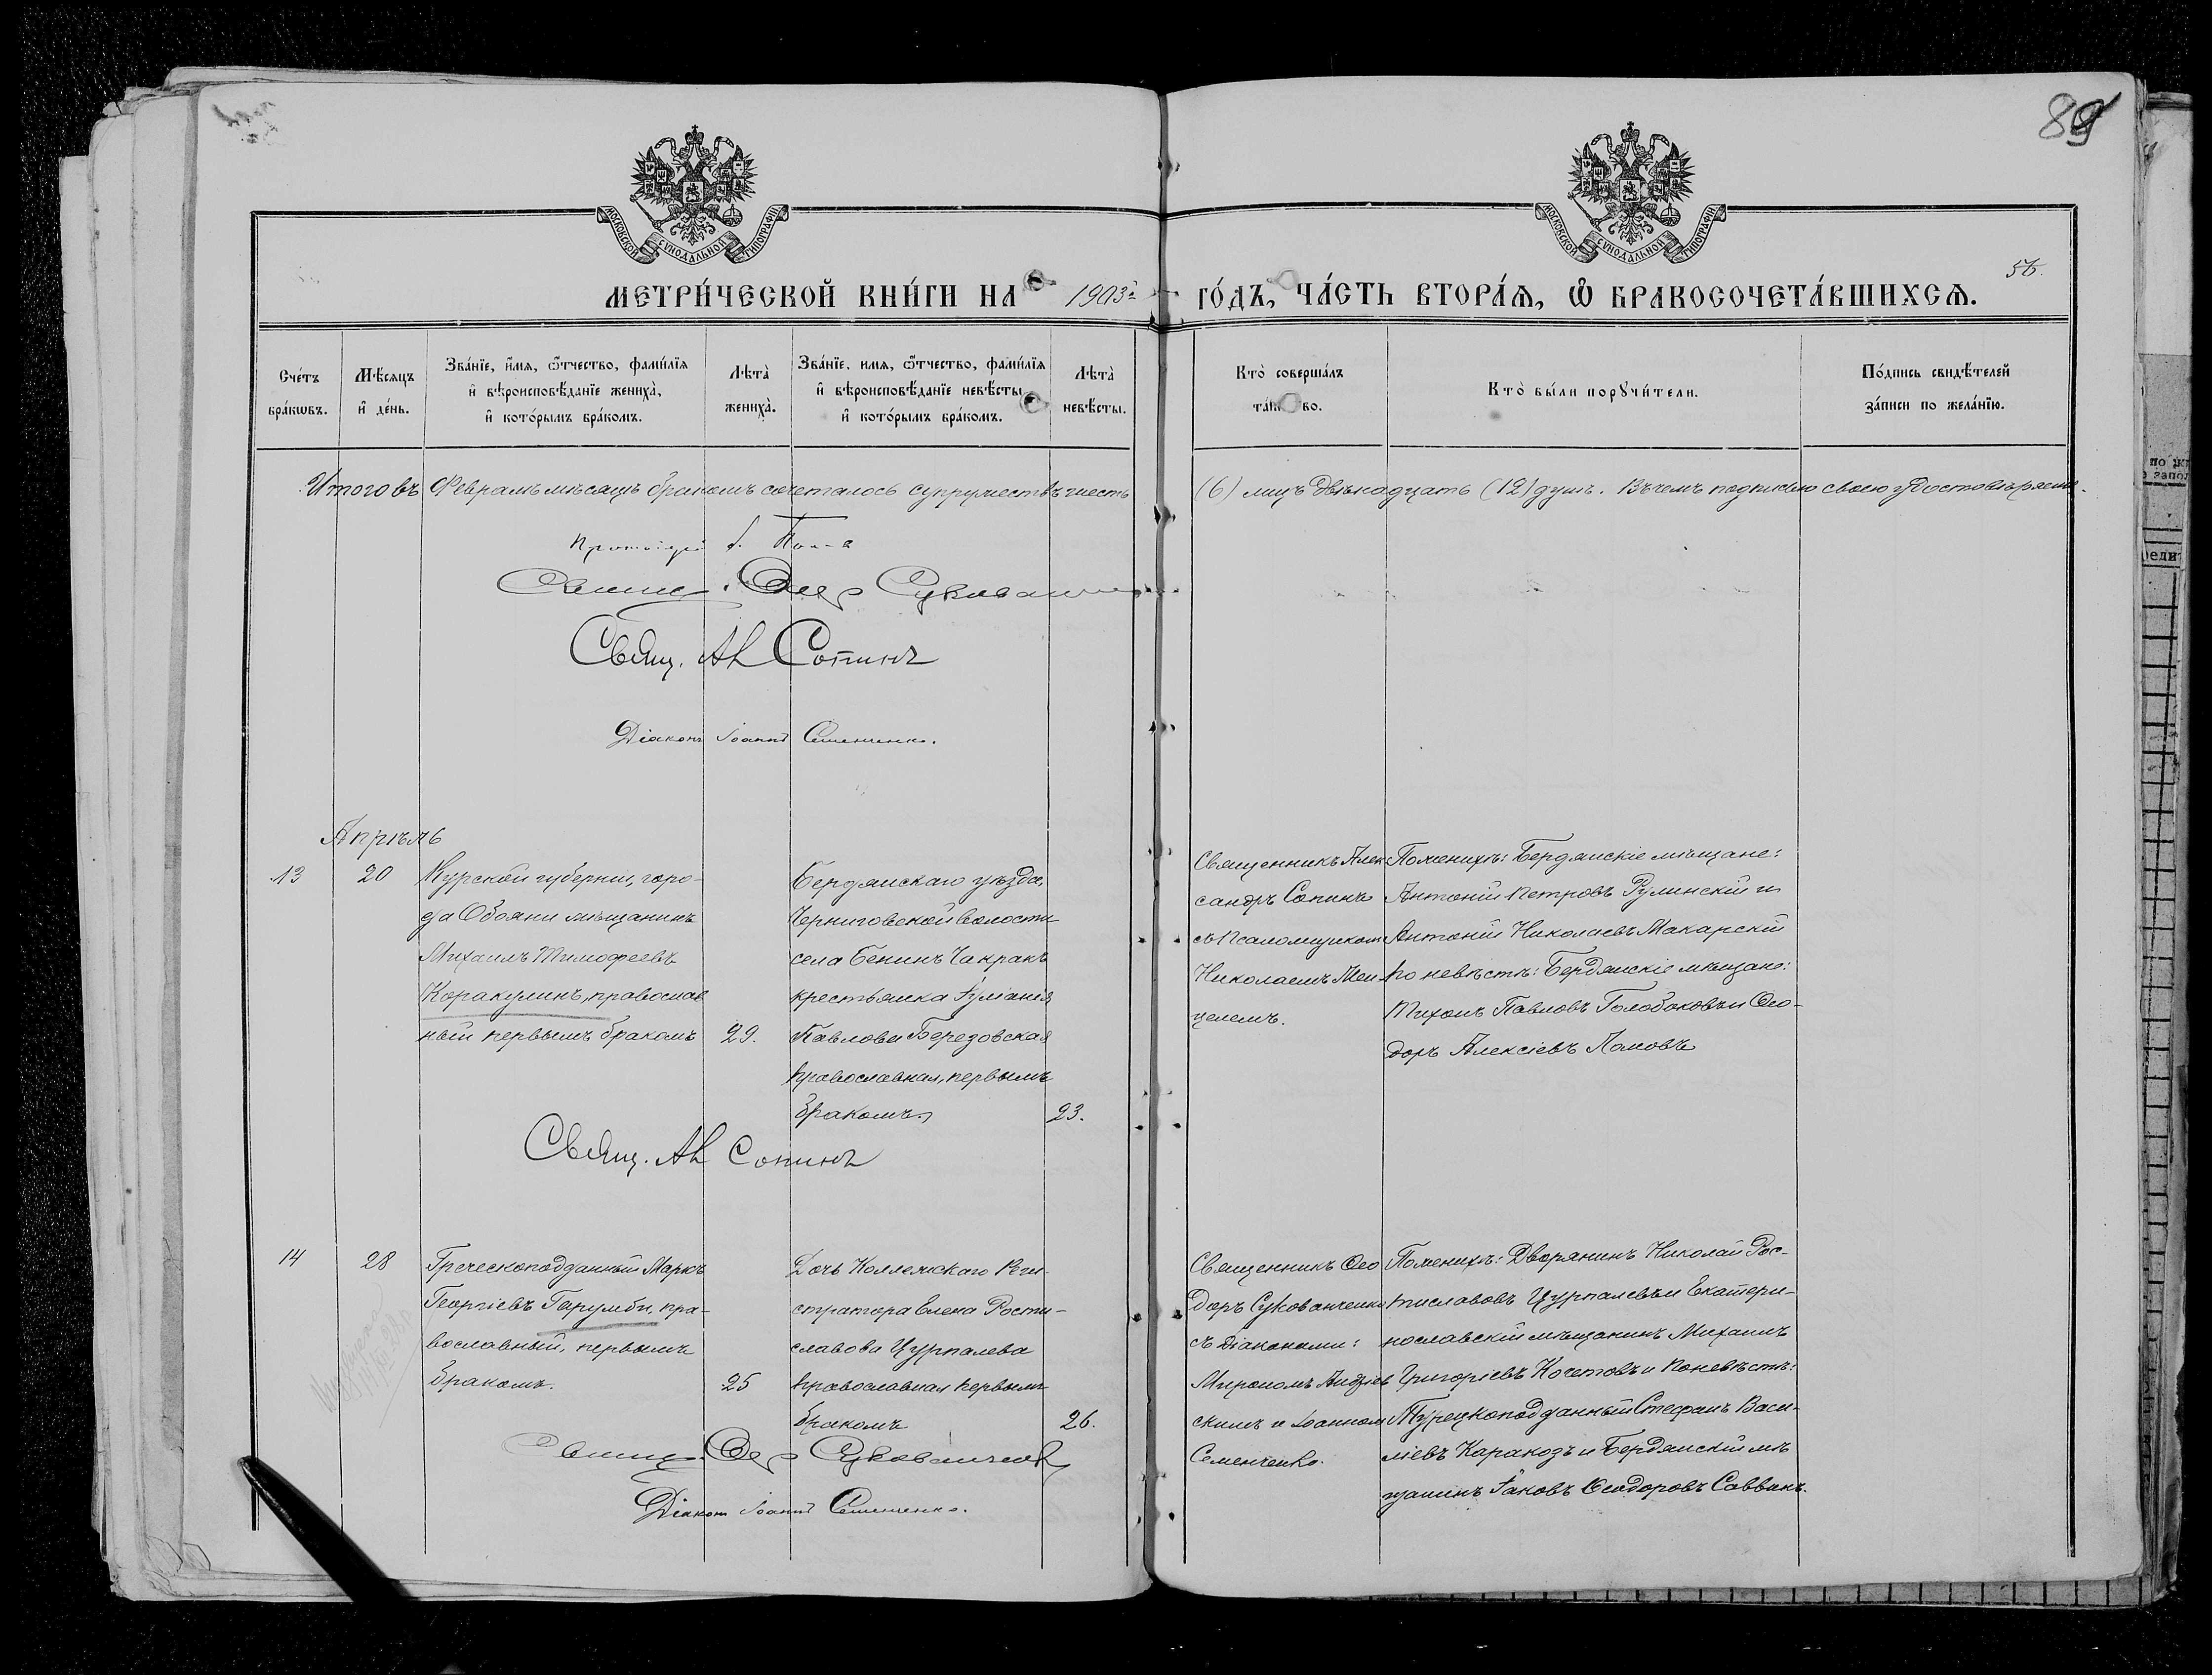 89
МОСКОВСКОЙ СѴНОДАЛЬНОЙ ТИПОГРАФІИ
МОСКОВСКОЙ СѴНОДАЛЬНОЙ ТИПОГРАФІИ
МЕТРИ́ЧЕСКОЙ КНИ́ГИ НА 1903й ГО́ДЪ, ЧА́СТЬ ВТОРА́Ѧ, Ѡ БРАКОСОЧЕТА́ВШИХСѦ.
56.
Сче́тъ
бра́кѡвъ.
Мѣ́сяцъ
и҆ де́нь.
Зва́нїе, и҆́мѧ, ѻ҆́тчество, фамі́лїѧ
и҆ вѣроисповѣ́данїе жениха̀,
и҆ кото́рымъ бра́комъ.
Лѣта̀
жениха̀.
Зва́нїе, имѧ, ѻ҆́тчество, фамі́лїѧ
и҆ вѣроисповѣ́данїе невѣ́сты
и҆ кото́рымъ бра́комъ.
Лѣта̀
невѣ́сты.
Кто̀ соверша́лъ
та́и во.
Кто̀ бы́ли порꙋчи́тели.
По́дпись свидѣ́телей
за́писи по жела́нїю.
Итого въ Февралѣ мѣсяцѣ бракомъ сочеталось супружествъ шесть (6) лицъ двѣнадцать (12) душъ. Въ чемъ подписью своею удостовѣряемъ.
Свящ. Ѳеод Сукованченко
Свящ. Ал Сопинъ
Діаконъ Іоаннъ Семенченко.
Апрѣль
13
20
Курской губерніи, горо-
да Обояни мѣщанинъ
Михаилъ Тимофеевъ
Коракулинъ, православ
ный первымъ бракомъ
29.
Бердянскаго уѣзда,
Черниговской волости
села Бенинъ Чакракъ
крестьянка Іуліанія
Павлова Березовская
православная, первымъ
бракомъ.
23.
Священникъ Алек
сандръ Сопинъ
съ псаломщикомъ
Николаемъ Меи
целемъ.
По женихѣ: Бердянскіе мѣщане:
Антоній Петровъ Рулинскій и
Антоній Николаевъ Макарскій
по невѣстѣ: Бердянскіе мѣщане:
Тихонъ Павловъ Голобоковъ и Ѳео-
доръ Алексіевъ Ломовъ
Свящ. Ал Сопинъ
14
28
Греческоподданный Маркъ
Георгіевъ Гарумби, пра-
вославный, первымъ
бракомъ.
25
Дочь Коллежскаго Реги-
стратора Елена Рости-
славова Цурпалева
православная первымъ
бракомъ
26.
Священникъ Ѳео
доръ Сукованченко
съ діаконами:
Мирономъ Андріев
скимъ и Іоанномъ
Семенченко.
По женихѣ: Дворянинъ Николай Рос-
тиславовъ Цурпалевъ и Екатери-
нославскій мѣщанинъ Михаилъ
Григоріевъ Кочетовъ и по невѣстѣ:
Турецкоподданный Стефанъ Васи-
ліевъ Каракозъ и Бердянскій мѣ
щанинъ Іаковъ Ѳеодоровъ Саввинъ.
Свящ. Ѳеод Сукованченко
Діаконъ Іоаннъ Семенченко.